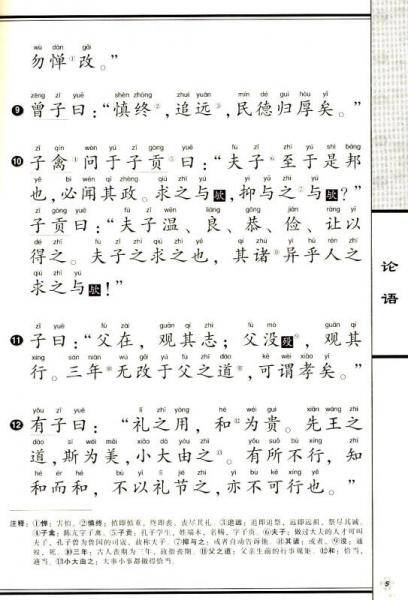 wù dàn gǎi
勿惮①改。”
zēng zǐ yuē shèn zhōng zhuī yuǎn mín dé guī hòu yǐ
❾曾子曰：“慎终②，追远③，民德归厚矣。”
zǐ qín wèn yú zǐ gòng yuē fū zǐ zhì yú shì bāng
❿子禽④问于子贡⑤曰：“夫子⑥至于是邦
yě bì wén qí zhèng qiú zhī yú yì yǔ zhī yú
也，必闻其政。求之与欤，抑与之⑦与欤？”
zǐ gòng yuē fū zǐ wēn liáng gōng jiǎn ràng yǐ
子贡曰：“夫子温、良、恭、俭、让以
dé zhī fū zǐ zhī qiú zhī yě qí zhū yì hū rén zhī
得之。夫子之求之也，其诸⑧异乎人之
qiú zhī yú
求之与欤！”
zǐ yuē fù zài guān qí zhì fù mò guān qí
⓫子曰：“父在，观其志；父没殁⑨，观其
xíng sān nián wú gǎi yú fù zhī dào kě wèi xiào yǐ
行。三年⑩无改于父之道⑪，可谓孝矣。”
yǒu zǐ yuē lǐ zhī yòng hé wéi guì xiān wáng zhī
⓬有子曰：“礼之用，和⑫为贵。先王之
dào sī wéi měi xiǎo dà yóu zhī yǒu suǒ bù xíng zhī
道，斯为美，小大由之⑬。有所不行，知
hé ér hé bù yǐ lǐ jié zhī yì bù kě xíng yě
和而和，不以礼节之，亦不可行也。”
注释：①惮：害怕。②慎终：慎即慎重，终即丧，丧尽其礼。③追远：追即追祭，远即远祖，祭尽其诚。
④子禽：陈亢字子禽。⑤子贡：孔子学生，姓端木，名赐，字子贡。⑥夫子：做过大夫的人才可叫
夫子，孔子曾为鲁国的司寇，故称夫子。⑦抑与之：或者自动告诉他。⑧其诸：或者。⑨没：通
殁，死。⑩三年：古人丧期为三年，故指丧期。⑪父之道：父亲生前的行事规矩。⑫和：恰当，
适当。⑬小大由之：大事小事都做得恰当。
论语
5